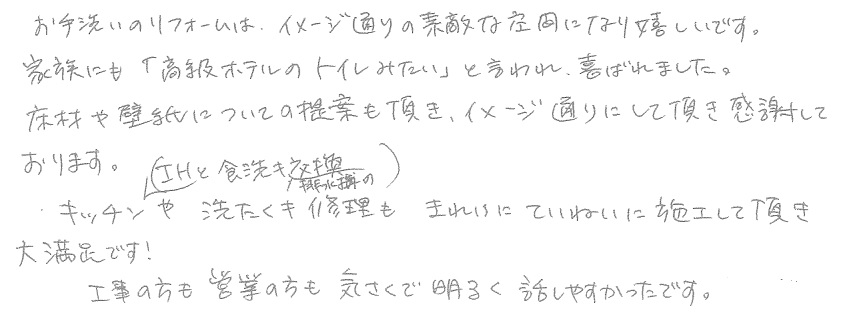 お手洗いのリフォームは、イメージ通りの素敵な空間になり嬉しいです。
家族にも「高級ホテルのトイレみたい」と言われ、喜ばれました。
床材や壁紙についての提案も頂き、イメージ通りにして頂き感謝して
おります。
(IHと食洗キ交換)
排水溝の
・キッチンや 洗たくキ修理も きれいに ていねいに施工して頂き
大満足です!
工事の方も営業の方も 気さくで明るく 話しやすかったです。